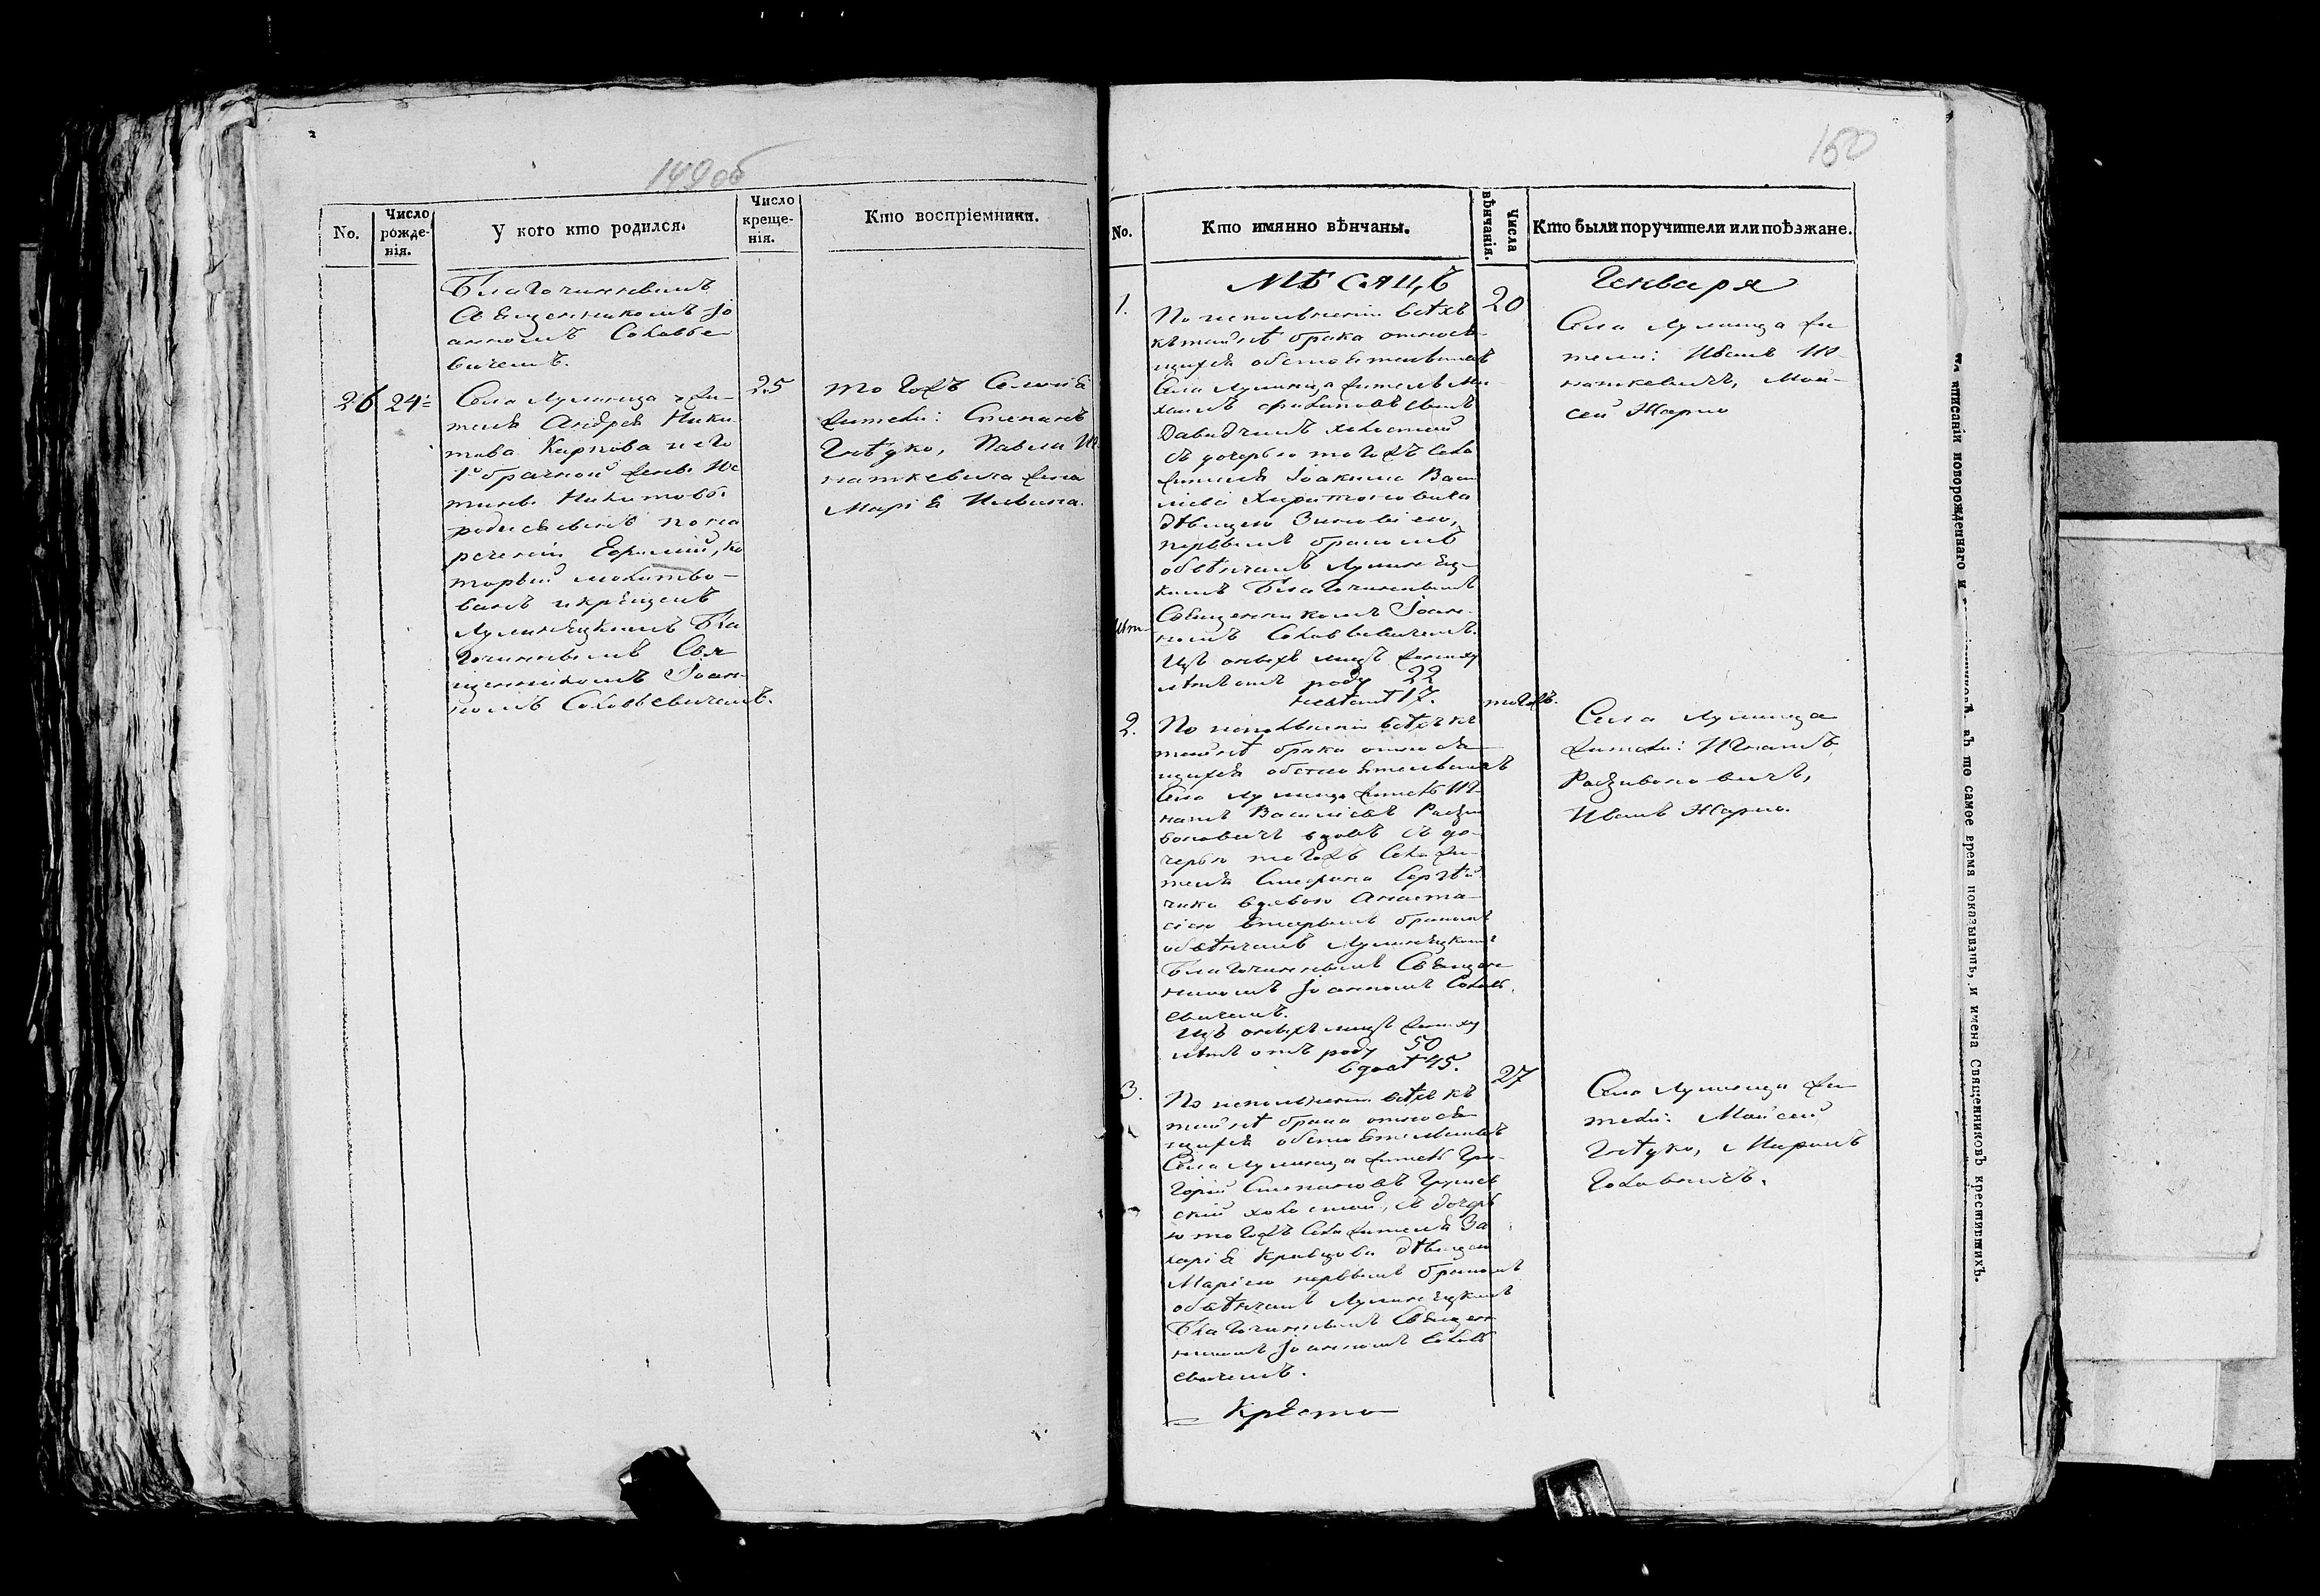 149 об
No.
Число рожде-нія.
У кого кто родился.
Число креще-нія.
Кто воспріемники.
Благочиннымъ
Священникомъ Іо
анномъ Соловье
вичемъ.
26
24
Села Лунинца жи-
теля Андрея Ники
това Карпова и его
1º брачной жены Ус
тины Никитовой
родился сынъ по на
речении Ефимий, ко
торый молитво-
ванъ и крещенъ
Лунинецкимъ Бла
гочиннымъ Свя
щенникомъ Іоан-
номъ Соловьевичемъ.
25
тогожъ Селения
жители: Степанъ
Гнѣдко, Павла Иг
наткевича жена
Марія Ильина.
150
No.
Кто имянно вѣнчаны.
Числа вѣнчанія.
Кто были поручители или поѣзжане.
МѢСЯЦЪ
Генваря
1.
По исполненіи всѣхъ
къ тайнѣ брака относя-
щихся обстоятельствъ
Села Лунинца житель Ми-
хаилъ Филиповъ сынъ
Давидчикъ холостый
съ дочерью тогожъ Села
жителя Іоакима Васи
ліева Харитоновича
дѣвицею Зиновіею,
первымъ бракомъ
обвѣнчанъ Лунинец-
кимъ Благочиннымъ
Священникомъ Іоан-
номъ Соловьевичемъ.
Изъ оныхъ лицъ жениху
лѣтъ отъ роду 22
невѣстѣ 17.
20
Села Лунинца жи
тели: Иванъ Иг-
наткевичъ, Мои-
сей Жарло
2.
По исполненіи всѣхъ къ
тайнѣ брака относя-
щихся обстоятельствъ
Села Лунинца житель Иг-
натъ Василіевъ Радзи
воновичъ вдовъ съ до-
черью тогожъ Села жи-
теля Стефана Сергѣй
чика вдовою Анаста-
сіею вторымъ бракомъ
обвѣнчанъ Лунинецкимъ
Благочиннымъ Священ
никомъ Іоанномъ Соловь
евичемъ.
Изъ оныхъ лицъ жениху
лѣтъ отъ роду 50
вдовѣ 45.
тогожъ.
Села Лунинца
жители: Игнатъ
Радзивоновичъ,
Иванъ Жарло.
3.
По исполненіи всѣхъ къ
тайнѣ брака относя-
щихся обстоятельствъ
Села Лунинца житель Гри-
горій Степановъ Грушев
скій холостый, съ дочерь
ю тогожъ Села жителя За
харія Кравцова дѣвицею
Маріею первымъ бракомъ
обвѣнчанъ Лунинецкимъ
Благочиннымъ Священ
никомъ Іоанномъ Соловь
евичемъ.
27
Села Лунинца жи-
тели: Моисей
Гнѣдко, Миронъ
Головничъ.